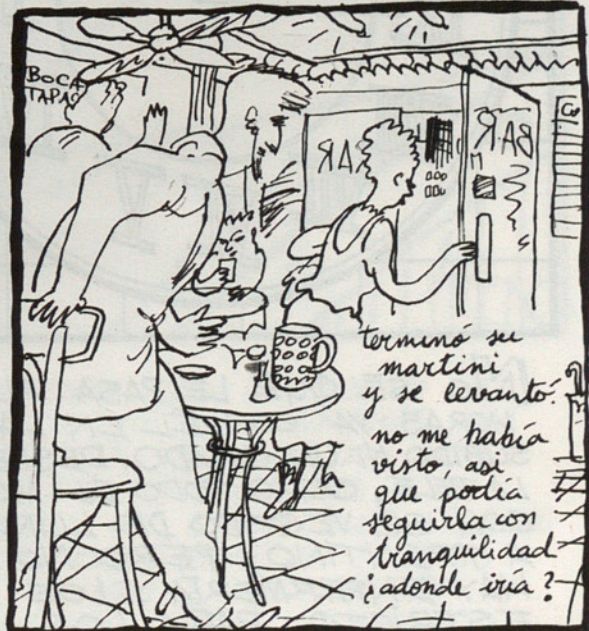 BOCA
TAPAS
BAR
BAR
terminó su
martini
y se levantó.
no me había
visto, asi
que podía
seguirla con
tranquilidad
¿adonde iria?